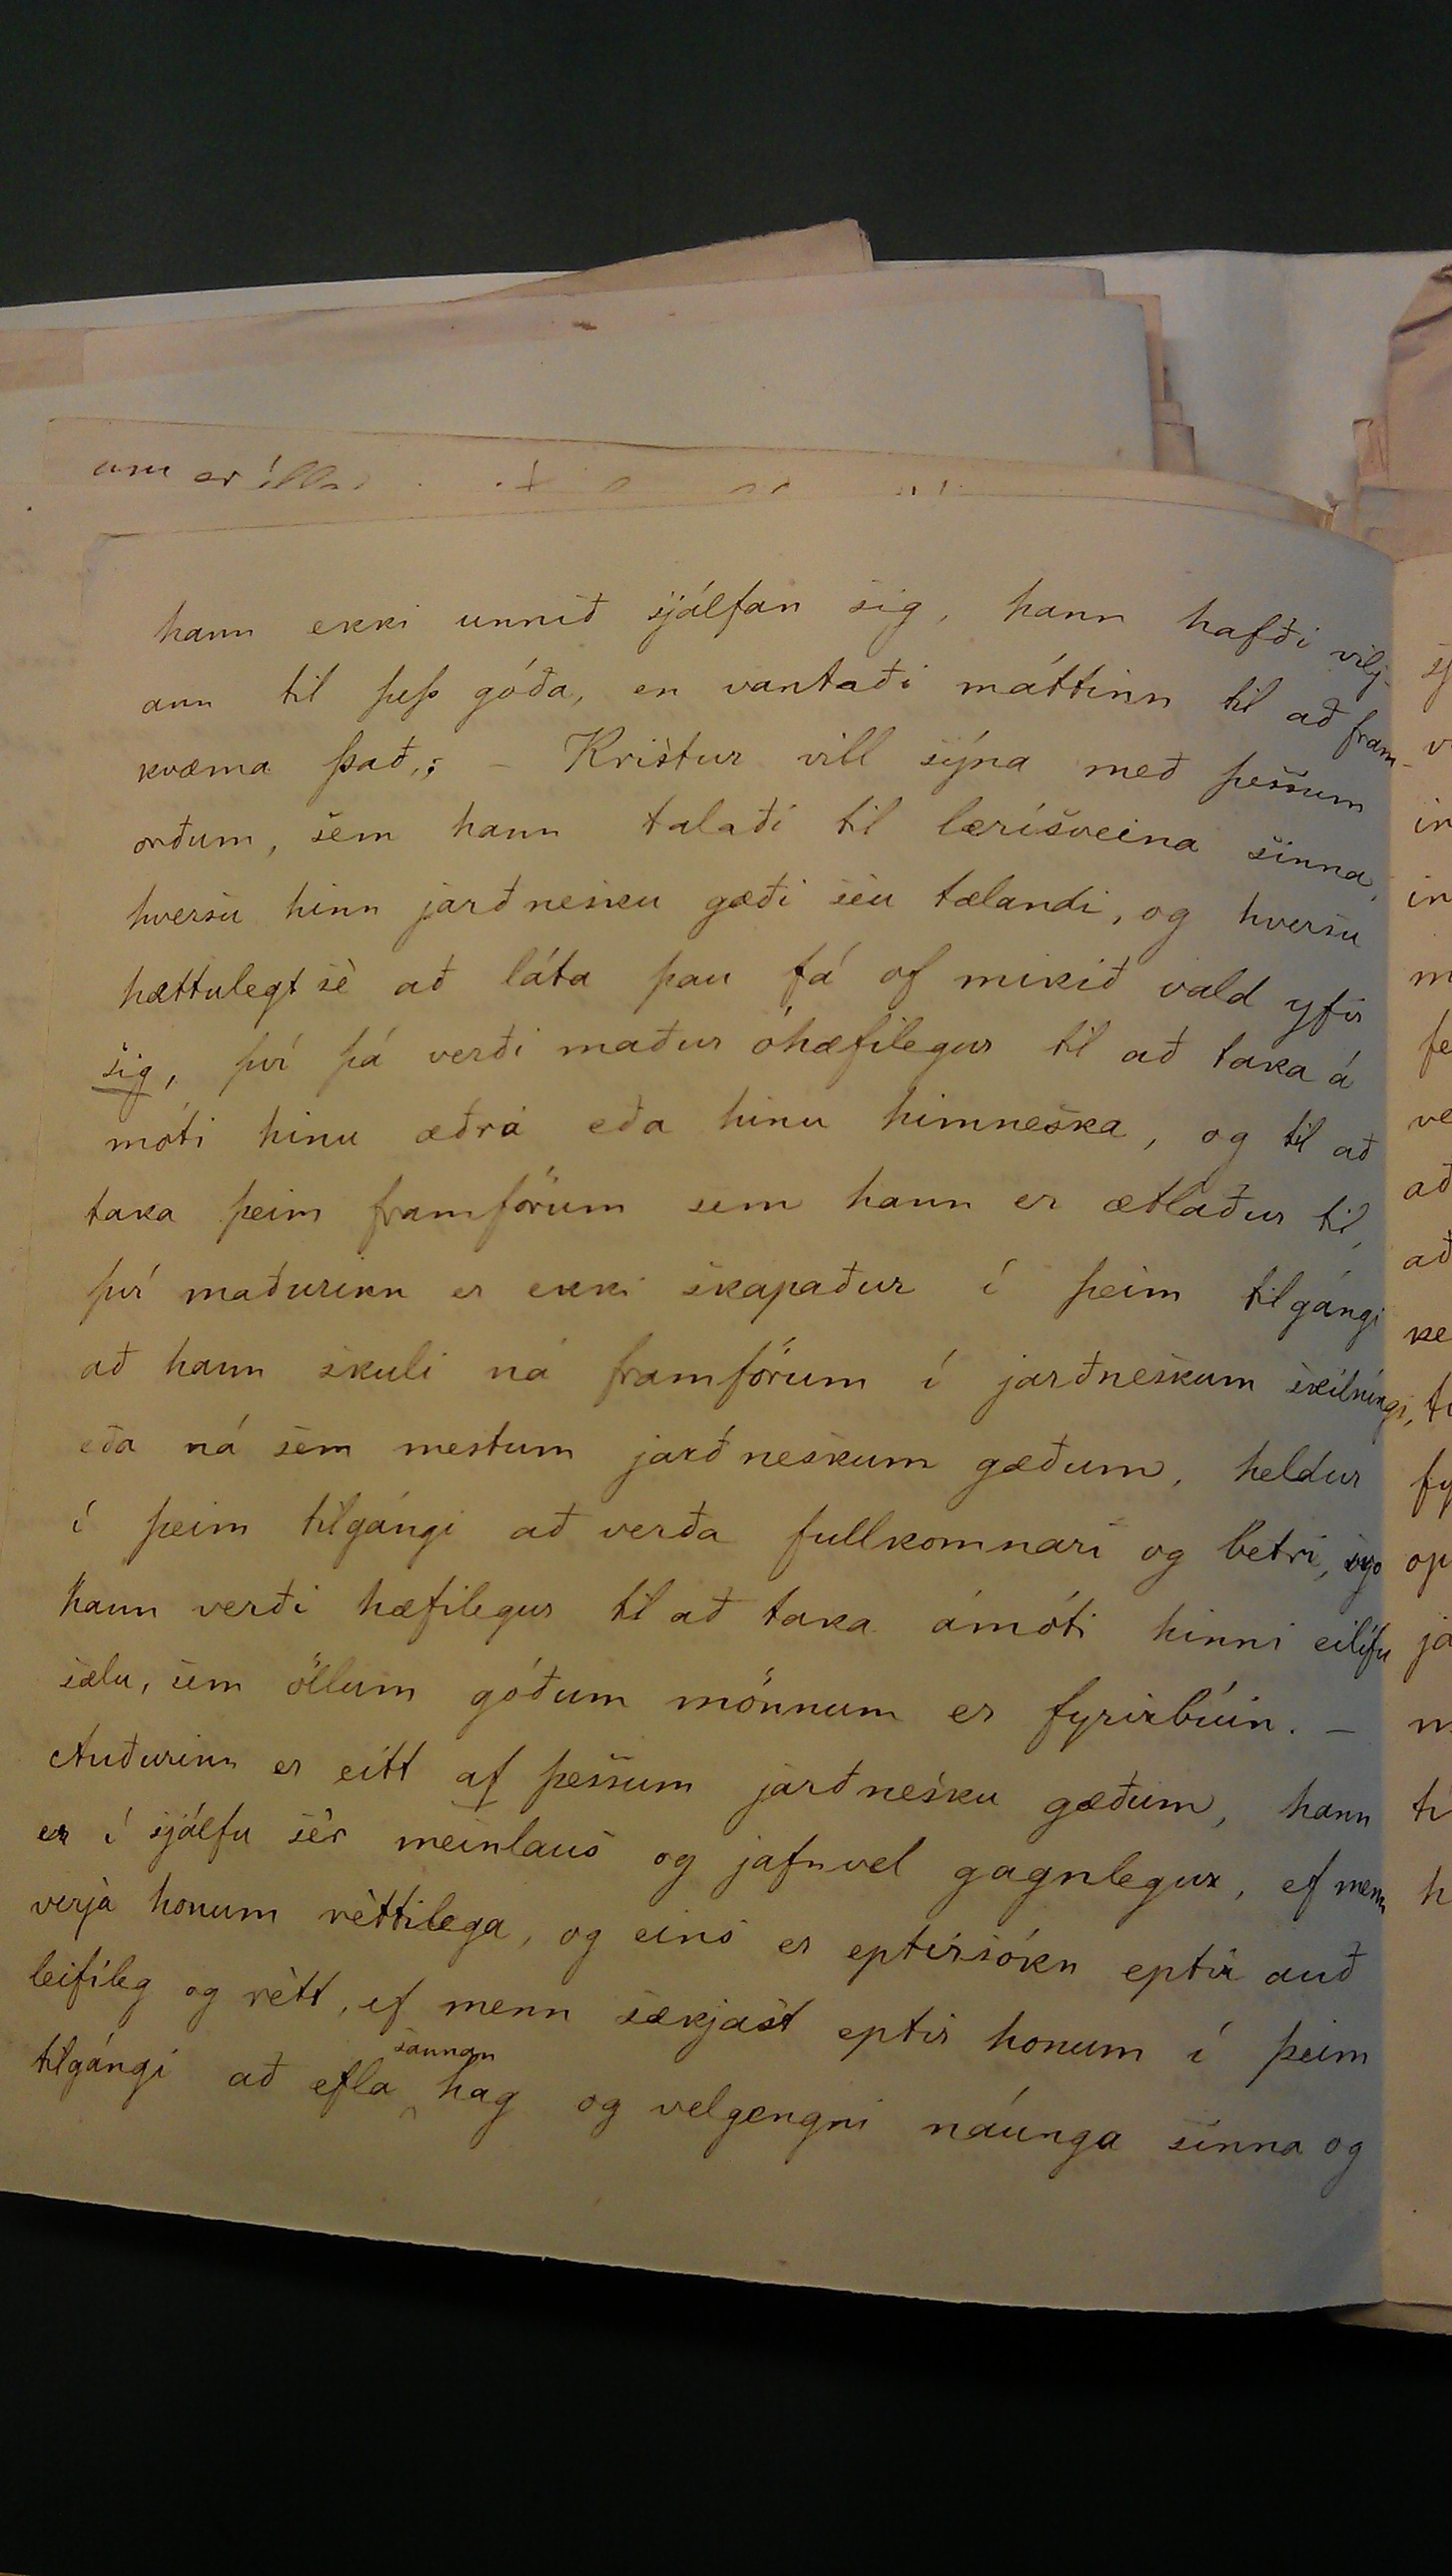 um er
hann ekki unnið sjálfan sig, hann hafði vilj-
ann til þess góða, en vantaði máttinn til að fram-
kvæma það,; – Kristur vill sýna með þessum
orðum, sem hann talaði til lærisveina sinna,
hversu hinn jarðnesku gæði séu tælandi, og hversu
hættulegt sè að láta þau fá of mikið vald yfir
sig, því þá verði maður óhæfilegur til að taka á
móti hinu æðra eða hinu himneska, og til að
taka þeim framförum sem hann er ætlaður til,
því maðurinn er ekki skapaður í þeim tilgángi
að hann skuli ná framförum í jarðneskum skílníngi,
eða ná sem mestum jarðneskum gæðum, heldur
í þeim tilgángi að verða fullkomnari og betri, svo
hann verði hæfilegur til að taka ámóti hinni eilífu
sælu, sem öllum góðum mönnum er fyrirbúin. –
Auðurinn er eitt af þessum jarðnesku gæðum, hann
er í sjálfu sér meinlaus og jafnvel gagnlegur, ef menn
verja honum rèttilega, og eins er eptirsókn eptir auð
leifileg og rètt, ef menn sækjast eptir honum í þeim
sannan
tilgángi að efla hag og velgengni náunga sinna og